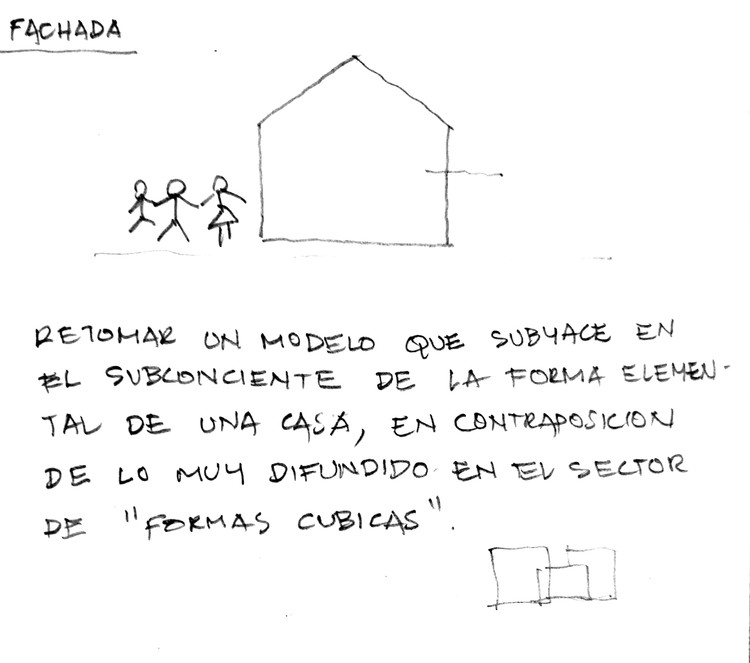 FACHADA
RETOMAR UN MODELO QUE SUBYACE EN
EL SUBCONCIENTE DE LA FORMA ELEMEN-
TAL DE UNA CASA, EN CONTRAPOSICION
DE LO MUY DIFUNDIDO EN EL SECTOR
DE "FORMAS CUBICAS".